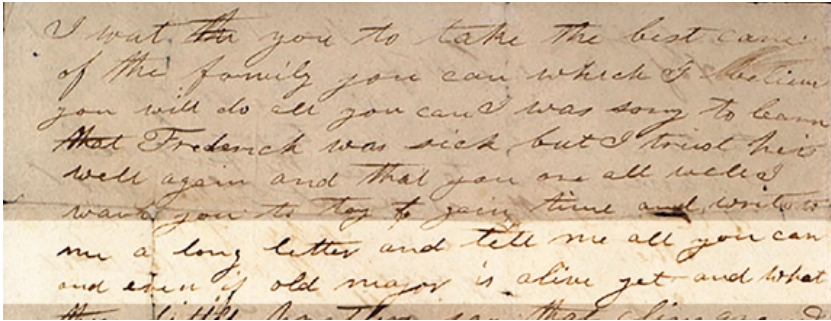 I wat the you to take the best care
of the family you can which I believe
you will do all you can I was sorry to learn
that Frederick was sick but I trust his
well again and that you are all well I
want you to try to gain time and write
me a long letter and tell me all you can
and even if old major is alive yet and what
the little